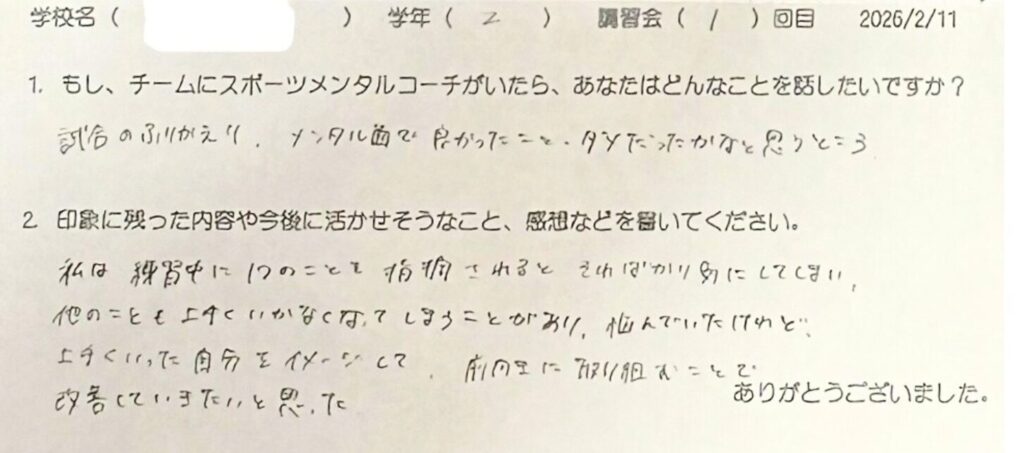 学校名（　　　）　学年（ 2 ）　講習会（ 1 ）回目　2026/2/11
1. もし、チームにスポーツメンタルコーチがいたら、あなたはどんなことを話したいですか？
試合のふりかえり、メンタル面で良かったこと・ダメだったかなと思うところ
2. 印象に残った内容や今後に活かせそうなこと、感想などを書いてください。
私は練習中に1つのことを指摘されるとそればかり気にしてしまい、
他のことも上手くいかなくなってしまうことがあり、悩んでいたけれど、
上手くいった自分をイメージして、前向きに取り組むことで
改善していきたいと思った
ありがとうございました。